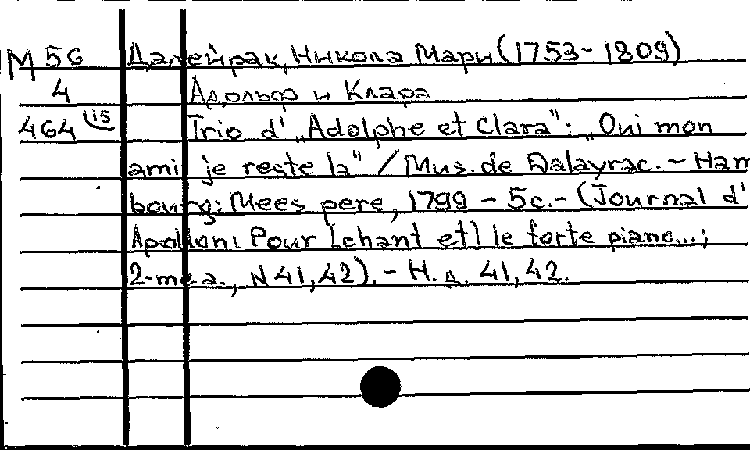 М 56 Далейрак, Никола Мари (1753-1809)
4 Адольф и Клара
464 (15 Trio d' „Adolphe et Clara": „Oui mon
ami je reste la" / Mus. de Dalayrac. - Ham
bourg: Mees pere, 1799 - 5с.- (Journal d'
Apolloni Pour [chant et] le forte piano...;
2-me a., N 41,42). - Н. д. 41,42.